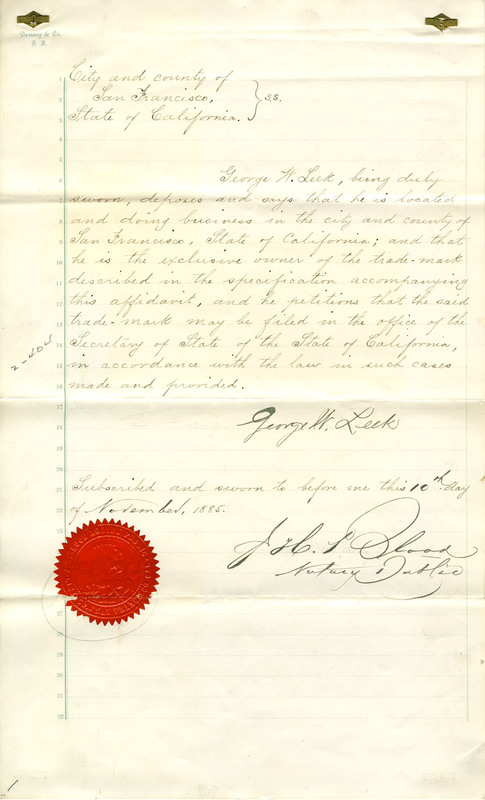 Dewey & Co.
S. F.
City and county of
San Francisco,
State of California. } s.s.
George W. Leek, being duly
sworn, deposes and says that he is located
and doing business in the city and county of
San Francisco, State of California; and that
he is the exclusive owner of the trade-mark
described in the specification accompanying
this affidavit, and he petitions that the said
trade-mark may be filed in the office of the
Secretary of State of the State of California,
in accordance with the law in such cases
made and provided.
George W. Leek
Subscribed and sworn to before me this 10th day
of November, 1885.
Blood
Notary Public
2-404
1
2
3
6
7
8
9
10
11
12
13
14
15
16
17
18
19
20
21
22
23
27
28
29
30
31
32